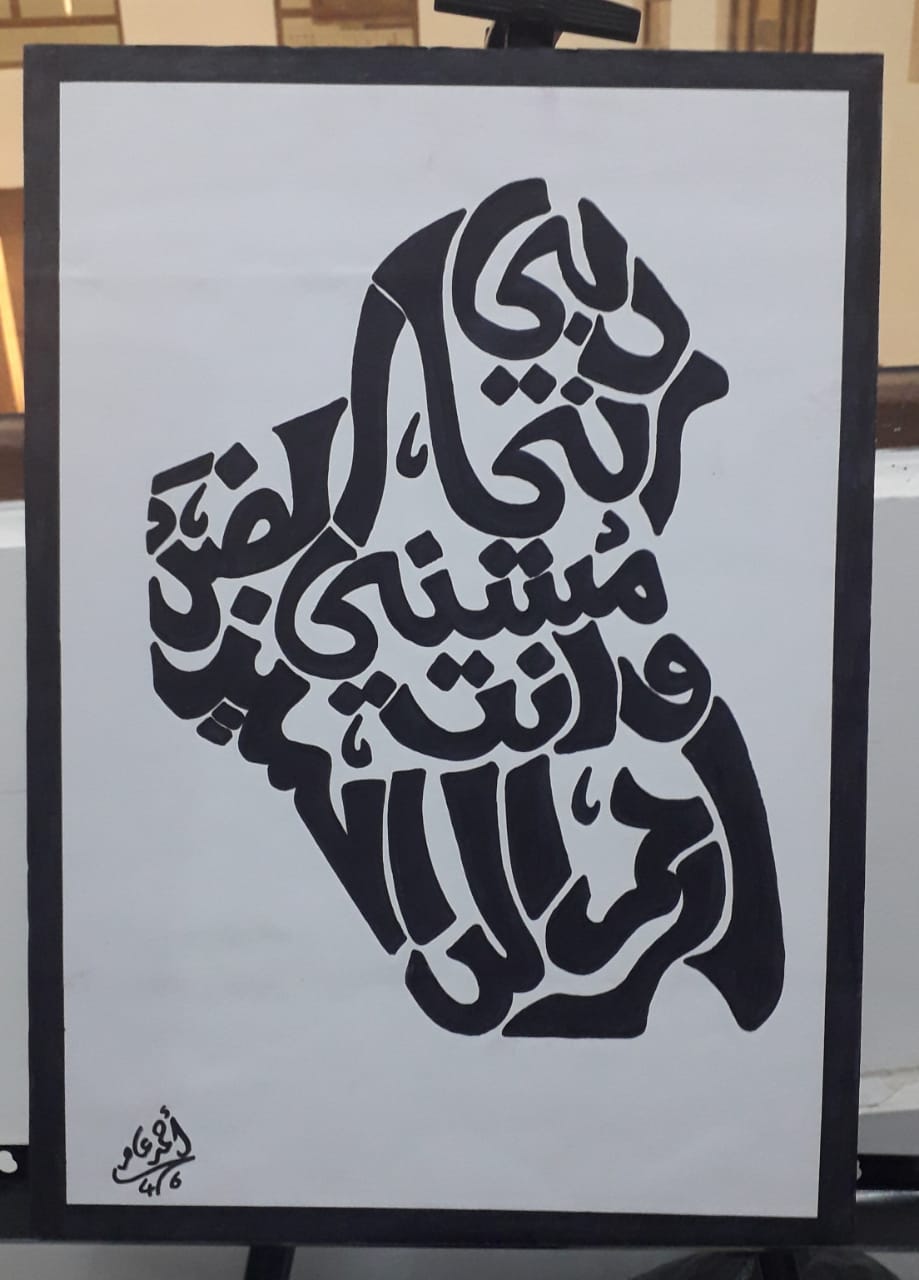 ربي
اني
مسني الضر
وانت
ارحم الراحمين
أحمد عامر
4/6